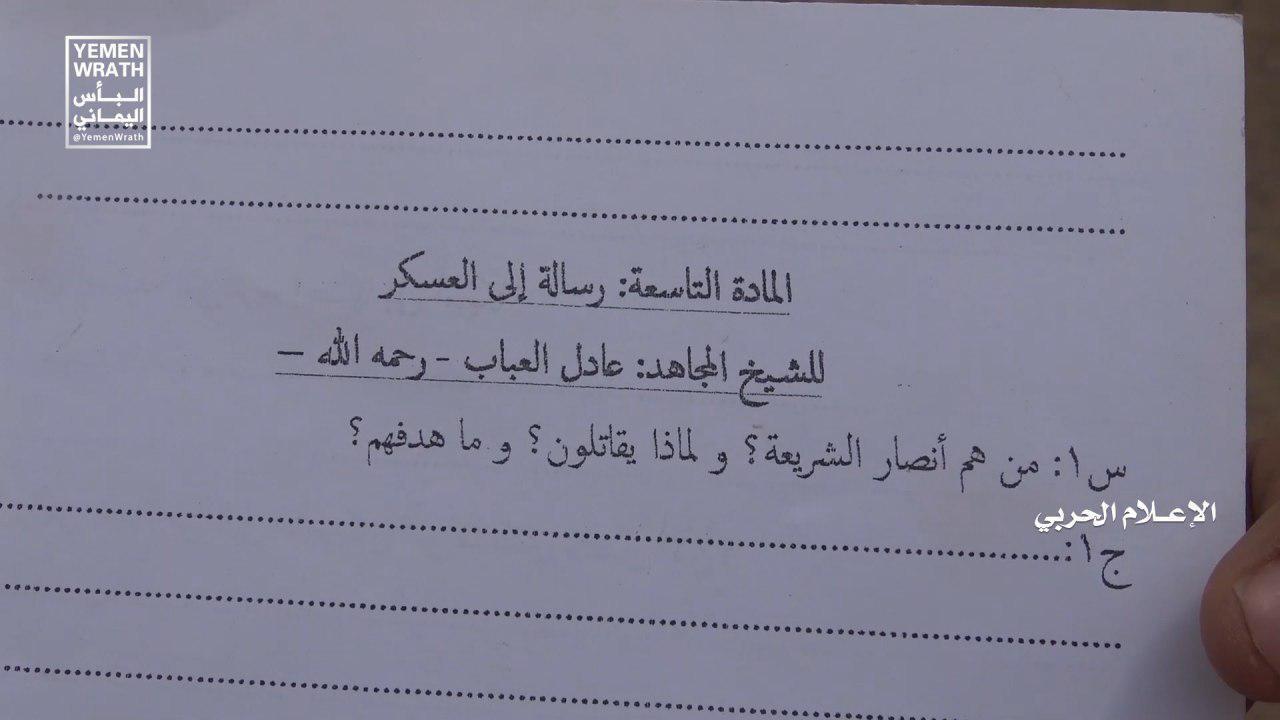 YEMEN
WRATH
البأس
اليماني
@YemenWrath
المادة التاسعة: رسالة إلى العسكر
للشيخ المجاهد: عادل العباب - رحمه الله –
س١: من هم أنصار الشريعة؟ و لماذا يقاتلون؟ و ما هدفهم؟
الإعلام الحربي
ج١: